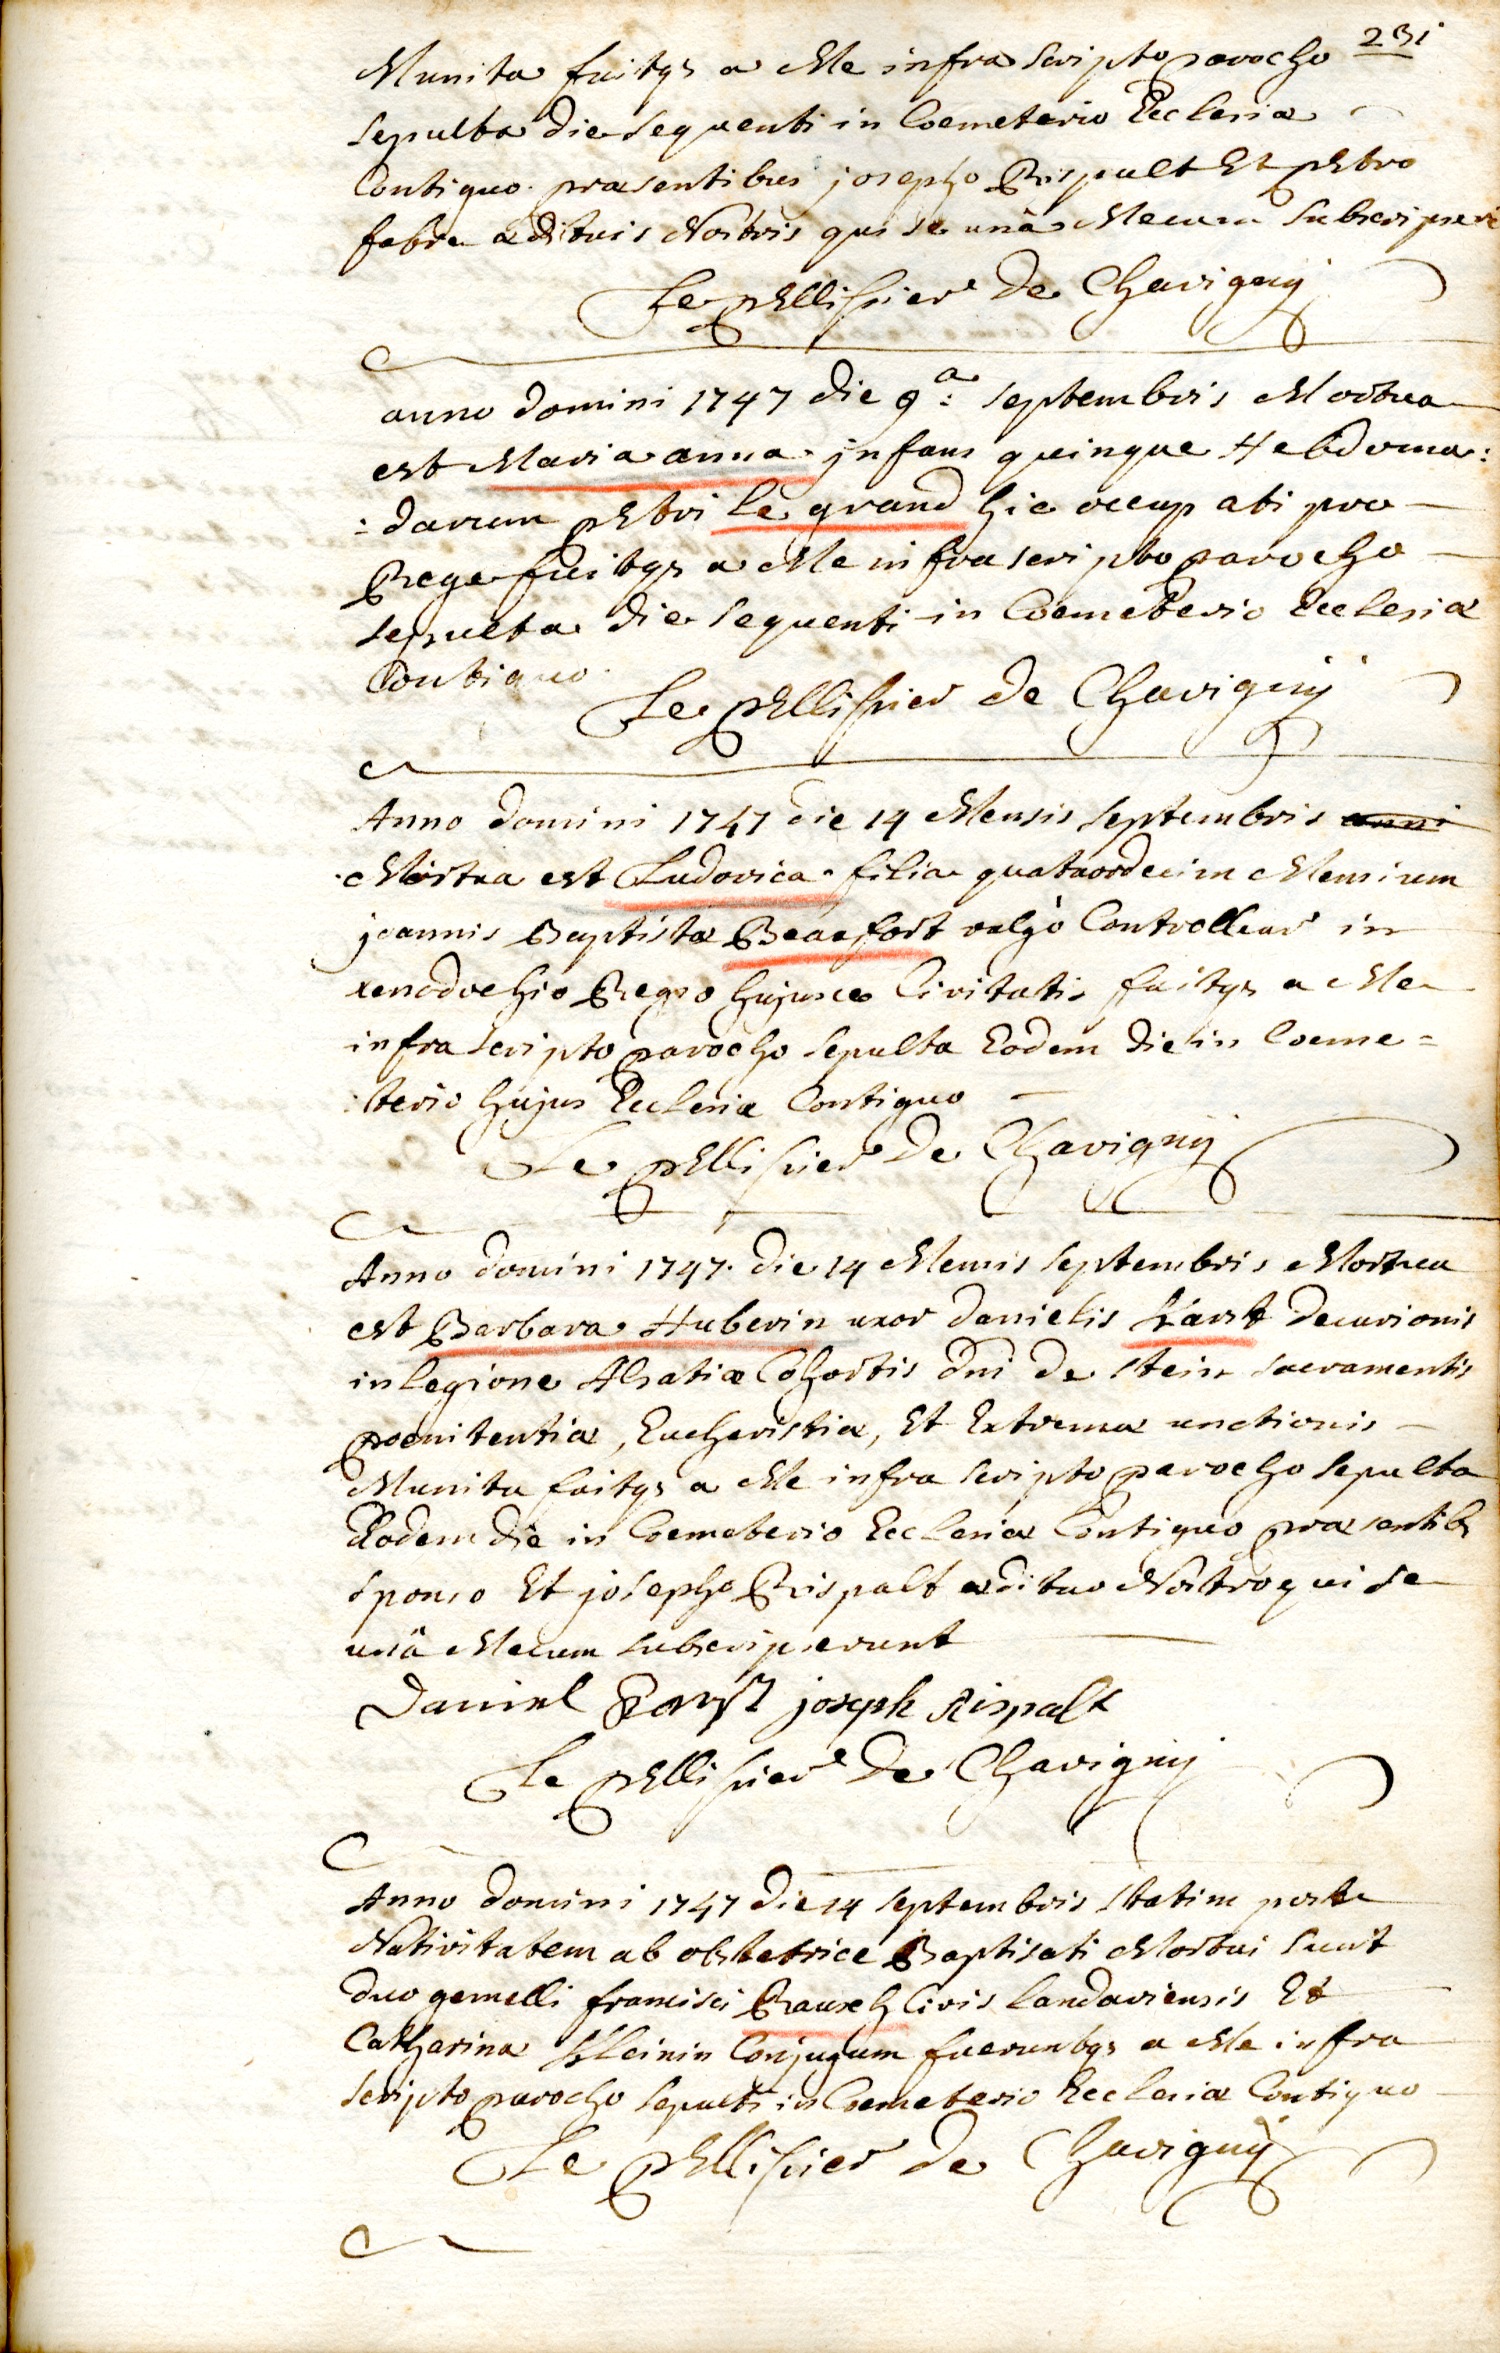 231
Munita fuitqs a Me infra scripto parocho
sepulta die sequenti in Coemeterio Ecclesiæ
Contiguo præsentibus josepho Rispalt Et pEtro
fabre ædituis Nostris qui se unâ Mecum subscripser
Le pEllissier De Chavigny
anno domini 1747 die 9.a septembris Mortua
est Maria anna infans quinque Hebdoma:
:darum pEtri le grand hic occupati pro
Rege fuitqs a Me infra scripto parocho
sepulta die sequenti in Coemeterio Ecclesiæ
Contiguo.
Le pEllissier de Chavigny
Anno domini 1747 die 14 Mensis septembris anni
Mortua est Ludovica filia quatuordecim Mensium
joannis Baptistæ Beaufort vulgò Controlleur in
xenodochio Regio hujusce Civitatis fuitqs a Me
infra scripto parocho sepulta Eodem die in Coeme=
:terio hujus Ecclesiæ Contiguo
Le pEllissier De Chavigny
Anno domini 1747. die 14 Mensis septembris Mortua
est Barbara Huberin uxor danielis Karst decurionis
in legione Alsatiæ Cohortis dni de stein sacramentis
poenitentiæ, Eucharistiæ, Et Extremæ unctionis
Munita fuitqs a Me infra scripto parocho sepulta
Eodem die in Coemeterio Ecclesiæ Contiguo præsentib
sponso Et josepho Rispalt ædituo Nostro qui se
unâ Mecum subscripserunt
Daniel joseph Rispalt
Le pEllissier De Chavigny
Anno domini 1747 die 14 septembris statim post
Nativitatem ab obstetrice Baptisati Mortui sunt
duo gemelli francisci Rausch Civis landaviensis Et
Catharinæ Kleinin Conjugum fueruntqs a Me infra
scripto parocho sepulti in Coemeterio Ecclesiæ Contiguo
Le pEllissier de Chavigny